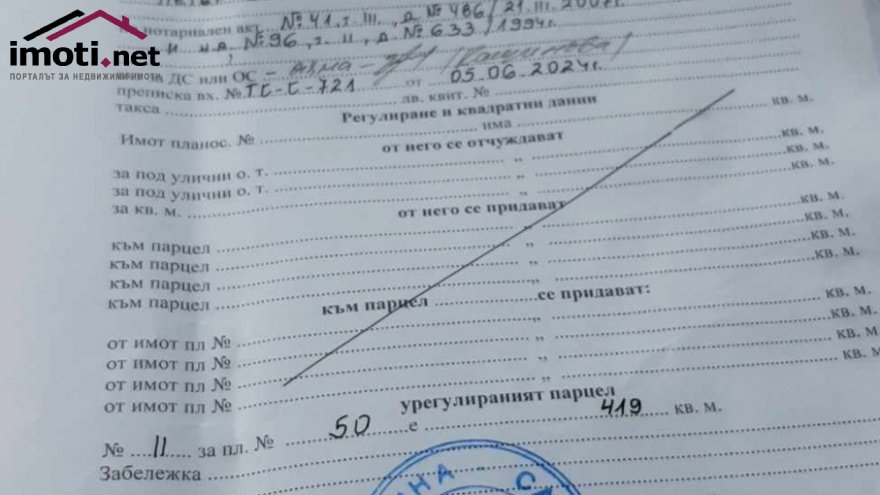 imoti.net
ПОРТАЛЪТ ЗА НЕДВИЖИМИ ИМОТИ
нотариален акт №41, т. III., д. №486/21.III.2007г.
и н.а. №96, т. II, д. №633/1994г.
ДС или ОС
преписка вх. № ТС-С-721 от 05.06.2024г.
такса лв. квит. №
Регулиране и квадратни данни
Имот планос. № има кв. м.
от него се отчуждават
за под улични о. т. „ кв. м.
за под улични о. т. „ кв. м.
за кв. м. „ кв. м.
от него се придават
към парцел „ кв. м.
към парцел „ кв. м.
към парцел „ кв. м.
към парцел
към парцел се придават:
от имот пл № „ кв. м.
от имот пл № „ кв. м.
от имот пл № „ кв. м.
от имот пл № „ кв. м.
урегулираният парцел
№ II за пл. № 50 е 419 кв. м.
Забележка